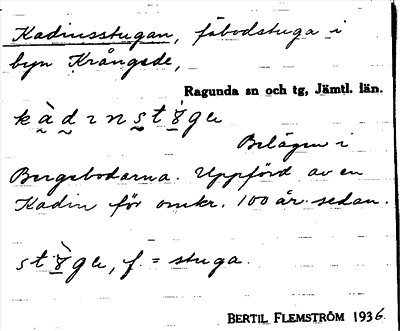 Kadinsstugan, fäbodstuga i
byn Krångede,
Ragunda sn och tg, Jämtl. län.
Belägen i
Bergebodarna. Uppförd av en
Kadin för omkr. 100 år sedan.
f. = stuga.
BERTIL FLEMSTRÖM 1936.